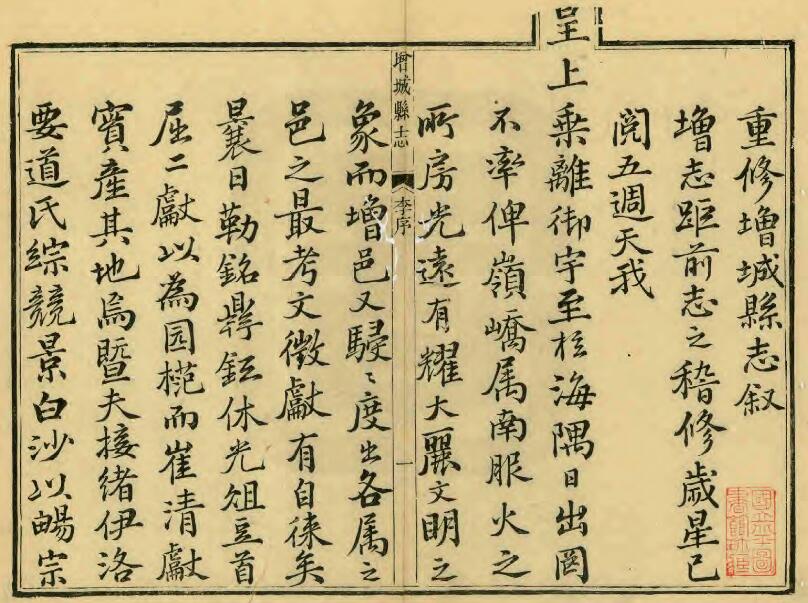 重修增城縣志叙
增志距前志之稽修歲星已
閱五週天我
皇上乘離御宇至於海隅日出罔
不率俾嶺嶠属南服火之
所房光遠有耀大麗文明之
增城縣志 李序 一
象而增邑又駸〻度出各属之
邑之最考文徵獻有自徠矣
曩日勒銘鼎鉉休光俎豆首
屈二獻以為而崔清獻
實產其地焉暨夫接緒伊洛
要道氏綜競景白沙以暢宗